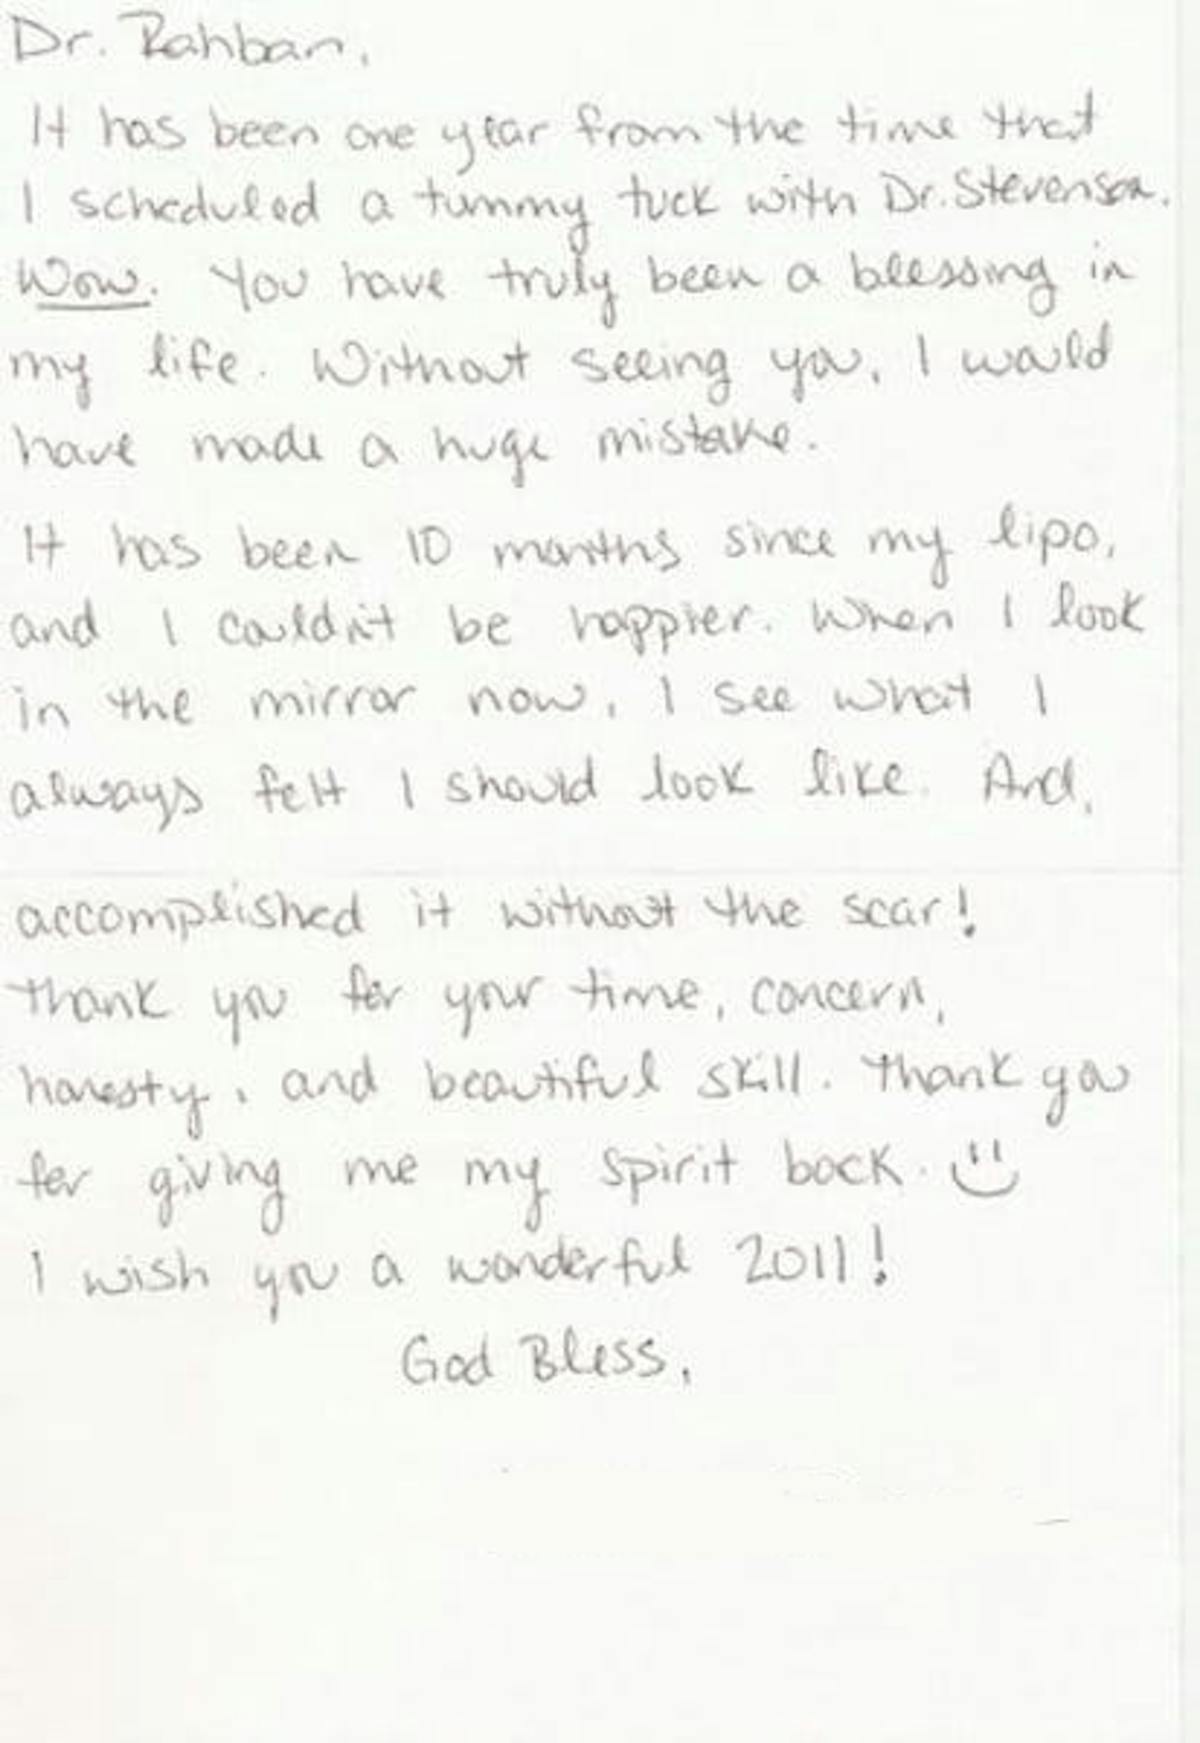 Dr. Rahban,
It has been one year from the time that
I scheduled a tummy tuck with Dr. Stevenson.
Wow. You have truly been a blessing in
my life. Without seeing you, I would
have made a huge mistake.
It has been 10 months since my lipo,
and I couldn't be happier. When I look
in the mirror now, I see what I
always felt I should look like. And,
accomplished it without the scar!
Thank you for your time, concern,
honesty, and beautiful skill. Thank you
for giving me my spirit back. :)
I wish you a wonderful 2011!
God Bless,